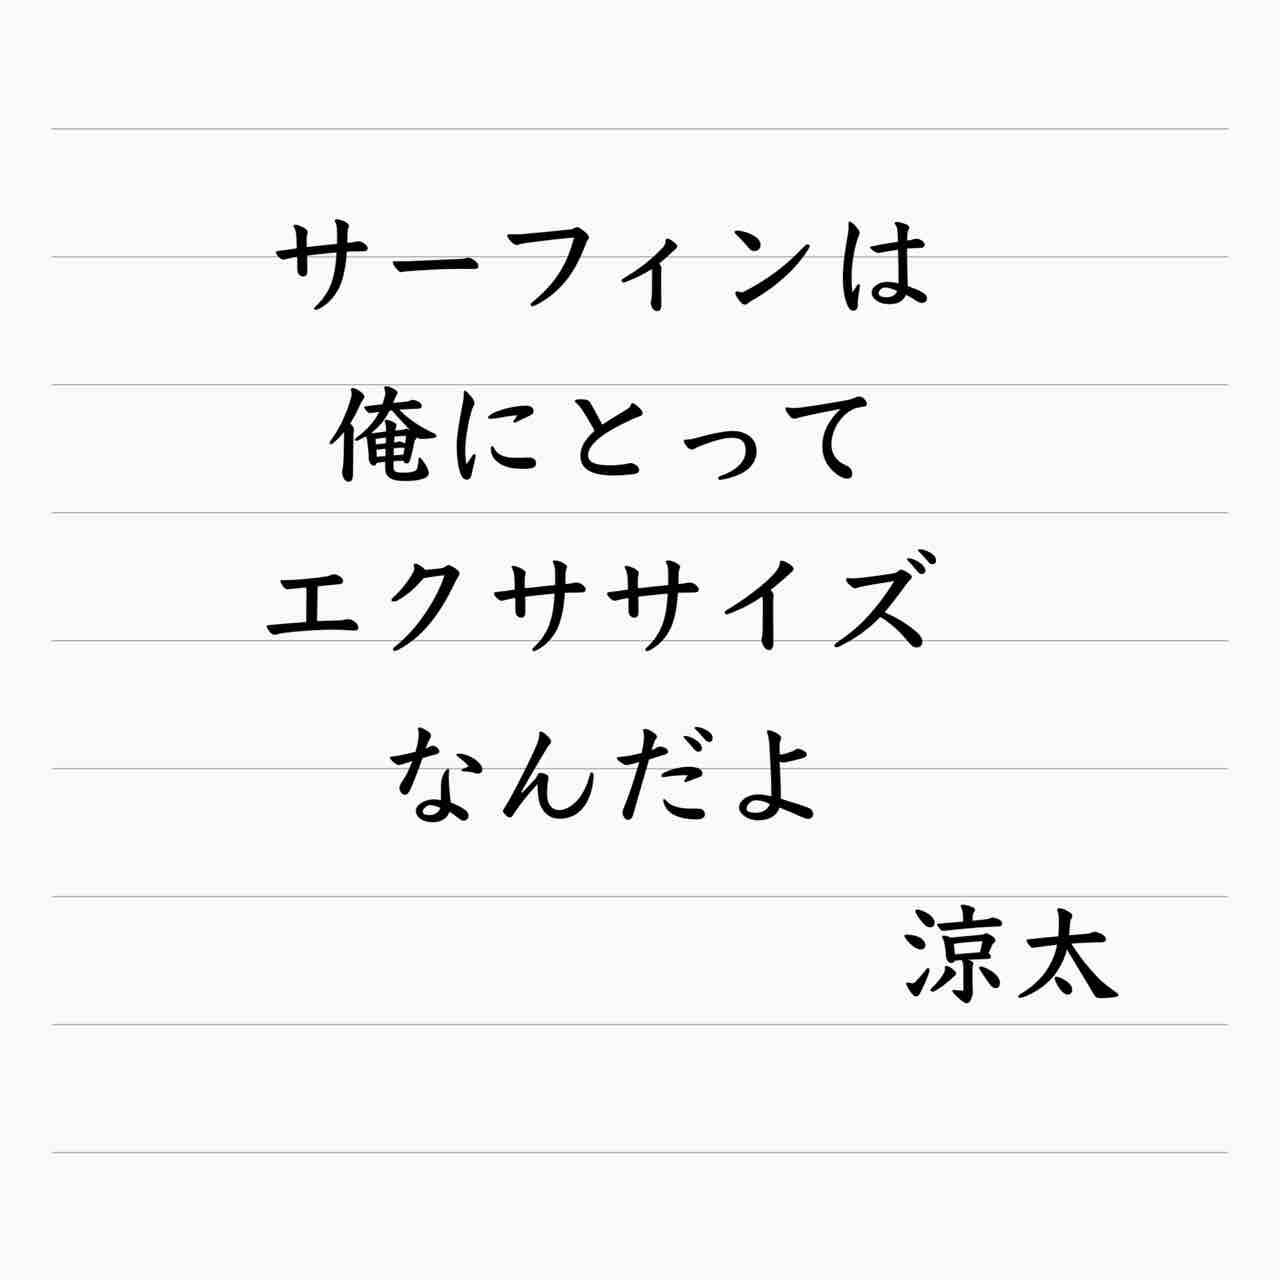 サーフィンは
俺にとって
エクササイズ
なんだよ
涼太